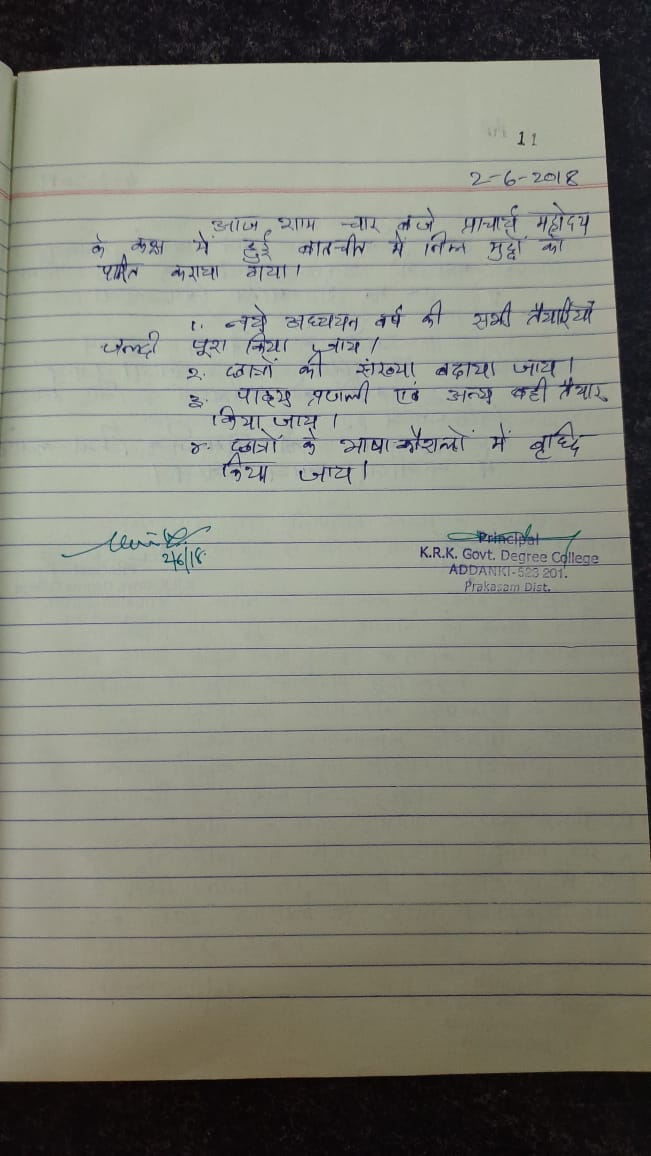 11
2-6-2018
आज शाम चार बजे प्राचार्य महोदय
के कक्ष में हुई बातचीत में निम्न मुद्दों को
पारित कराया गया।
1. नये अध्ययन वर्ष की सभी तैयारियाँ
जल्दी पूरा किया जाय।
२. छात्रों की संख्या बढाया जाय।
३. पाठ्य प्रणाली एवं अन्य बही तैयार
किया जाय।
४. छात्रों के भाषा कौशलों में वृध्दि
किया जाय।
2/6/18.
Principal
K.R.K. Govt. Degree College
ADDANKI-523 201.
Prakasam Dist.